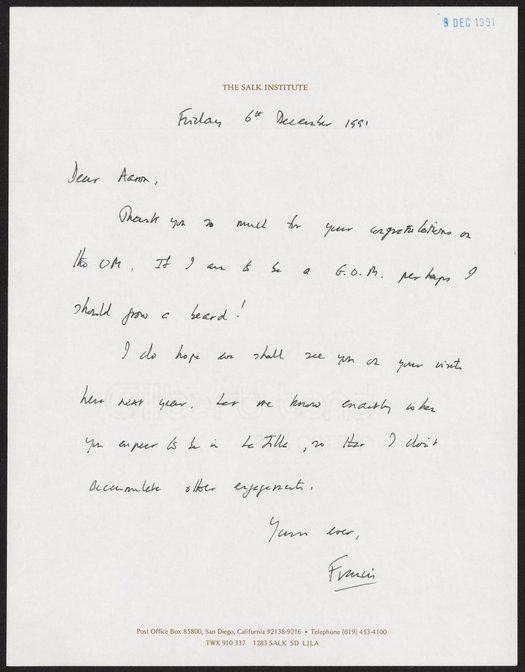 9 DEC 1991
THE SALK INSTITUTE
Friday 6th December 1991
Dear Aaron,
Thank you so much for your congratulations on
the OM. If I am to be a G.O.M. perhaps I
should grow a beard!
I do hope we shall see you on your visit
here next year. Let me know exactly when
you expect to be in La Jolla, so that I don't
accumulate other engagements.
Yours ever,
Francis
Post Office Box 85800, San Diego, California 92138-9216 • Telephone (619) 453-4100
TWX 910 337 1283 SALK SD LJLA